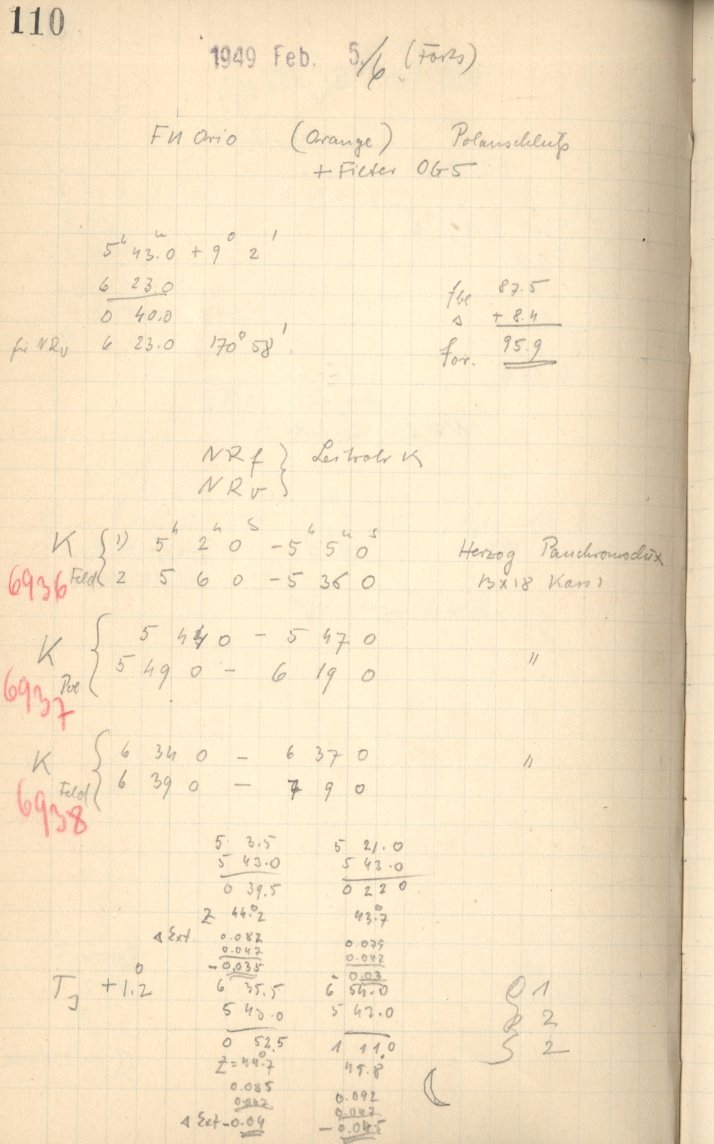 110
1949 Feb. 5/6 (Forts)
FU Orio (Orange) Polanschluß
+ Filter OG5
5h 43.0m + 9° 2'
6 23.0
0 40.0
für NRv 6 23.0 170° 58'
fbl 87.5
Δ + 8.4
for. 95.9
NRf } Leitrohr K
NRv
K 6936 Feld
1) 5h 2m 0s - 5h 5m 0s
2 5 6 0 - 5 36 0
Herzog Panchromodux
13x18 Kass
K 6937 Pol
5 44 0 - 5 47 0 "
5 49 0 - 6 19 0
K 6938 Feld
6 34 0 - 6 37 0 "
6 39 0 - 7 9 0
5 3.5 5 21.0
5 43.0 5 43.0
0 39.5 0 22 0
Z 44.°2 43.°7
Δ Ext 0.082 0.079
0.047 0.042
-0.035 0.03
TJ +1.°2
6 35.5 6 54.0
5 43.0 5 43.0
0 52.5 1 11.0
Z=44.°7 45.8°
0.085 0.092
0.047 0.047
Δ Ext -0.04 -0.045
1
2
2